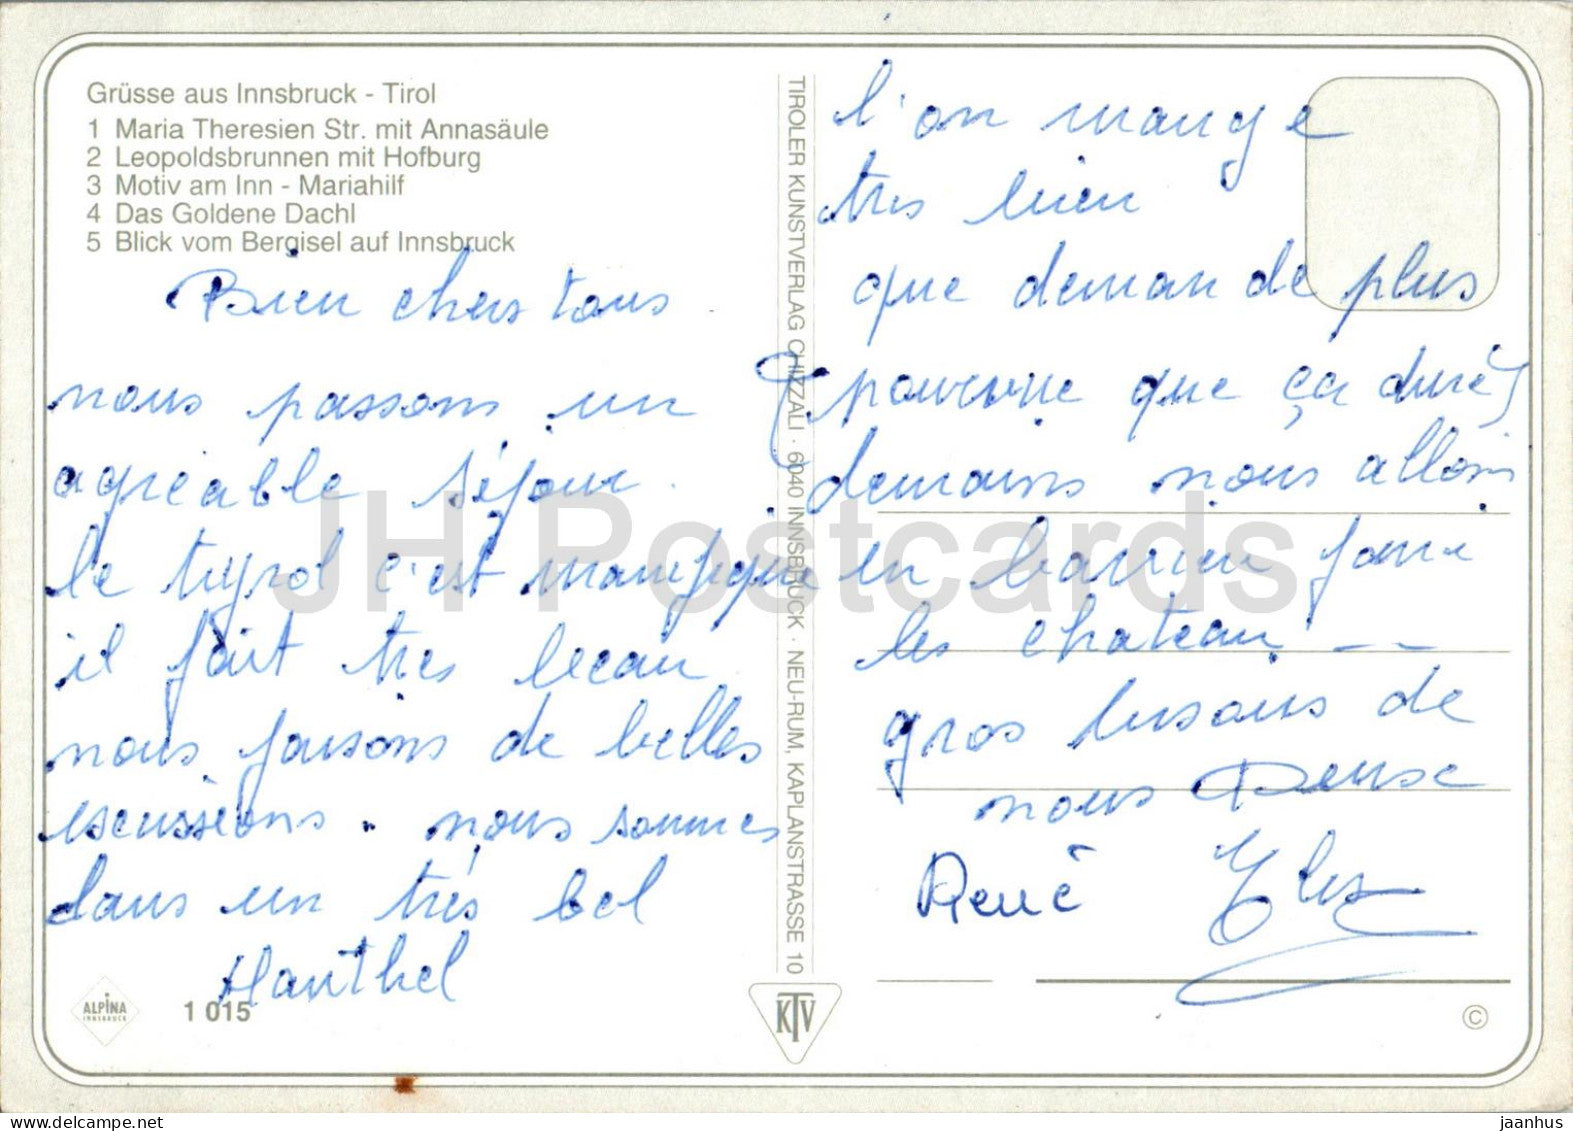 Grüsse aus Innsbruck - Tirol
1 Maria Theresien Str. mit Annasäule
2 Leopoldsbrunnen mit Hofburg
3 Motiv am Inn - Mariahilf
4 Das Goldene Dachl
5 Blick vom Bergisel auf Innsbruck
Bien chers tous
nous passons un
agréable séjour.
le tyrol c'est
il fait tres beau
nous faisons de belles
escussions. nous sommes
dans un très bel
ALPINA
INNSBRUCK
1 015
TIROLER KUNSTVERLAG CHIZZALI · 6040 INNSBRUCK · NEU-RUM, KAPLANSTRASSE 10
KTV
l'on mange
tres bien
que demande plus
pourvue que ça dure
demains nous allons
en
les chateau --
gros bisous de
nous Denise
René
©
JH Postcards
jaanhus
delcampe.net